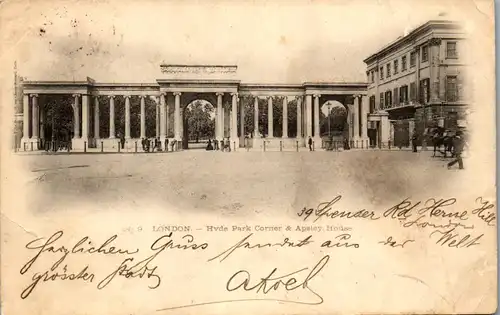 9. LONDON. — Hyde Park Corner & Apsley House
39 Spenser Rd. Herne Hill
London
Herzlichen Gruss sendet aus der Welt
grösster Stadt